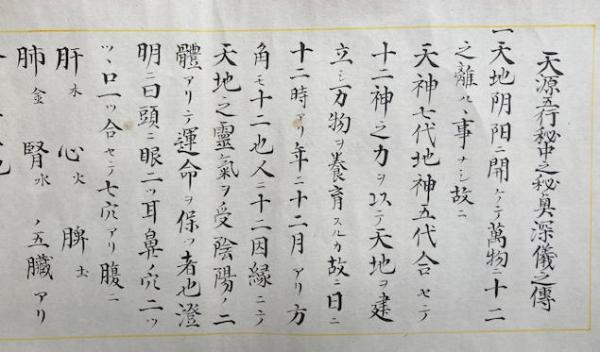 天源五行秘中之秘奥深儀之傳
一天地阴阳ニ開ケテ萬物ニ十二
之離ルヽ事ナシ故ニ
天神七代地神五代合セテ
十二神之力ヲ以テ天地ヲ建
立シ万物ヲ養育スルカ故ニ日ニ
十二時アリ年ニ十二月アリ方
角モ十二也人ニ十二因縁ニテ
天地之靈氣ヲ受陰陽ノ二
體アリテ運命ヲ保ツ者也澄
明ニ曰頭ニ眼二ツ耳鼻ノ穴二ツ
ツヽ口一ツ合セテ七穴アリ腹ニ
肝木 心火 脾土
肺金 腎水 ノ五臓アリ